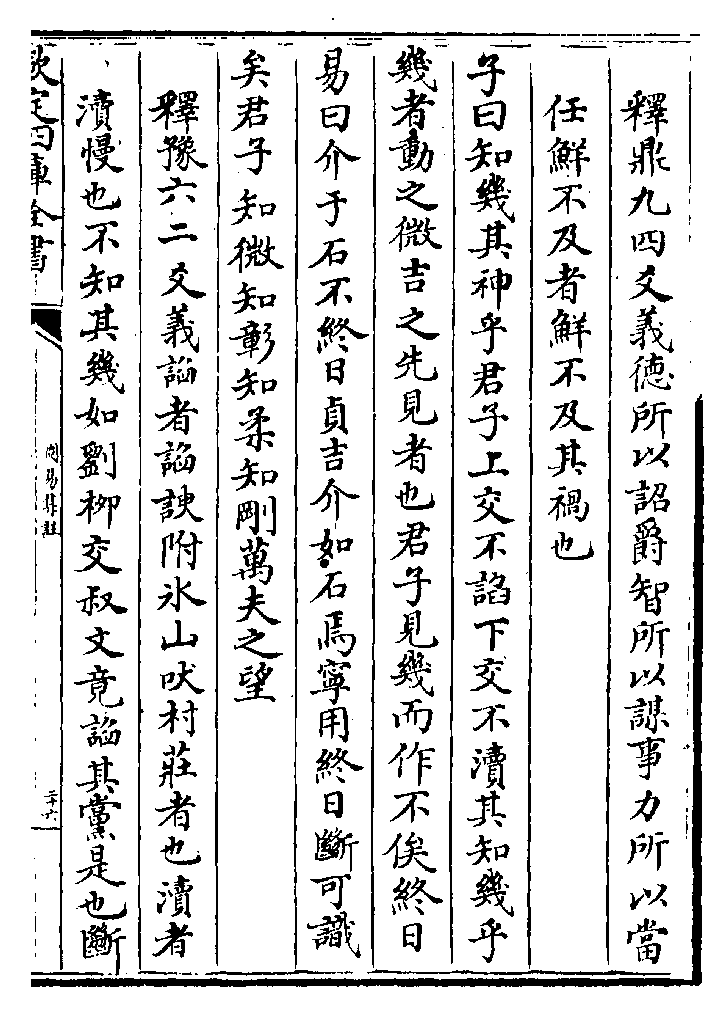 釋鼎九四爻義德所以詔爵智所以謀事力所以當
任鮮不及者鮮不及其禍也
子曰知幾其神乎君子上交不諂下交不瀆其知幾乎
幾者動之微吉之先見者也君子見幾而作不俟終日
易曰介于石不終日貞吉介如石焉寧用終日斷可識
矣君子知微知彰知柔知剛萬夫之望
釋豫六二爻義謟者謟諛附氷山吠村莊者也瀆者
瀆慢也不知其幾如劉柳交叔文竟謟其黨是也斷
欽定四庫全書
周易集註
二十六